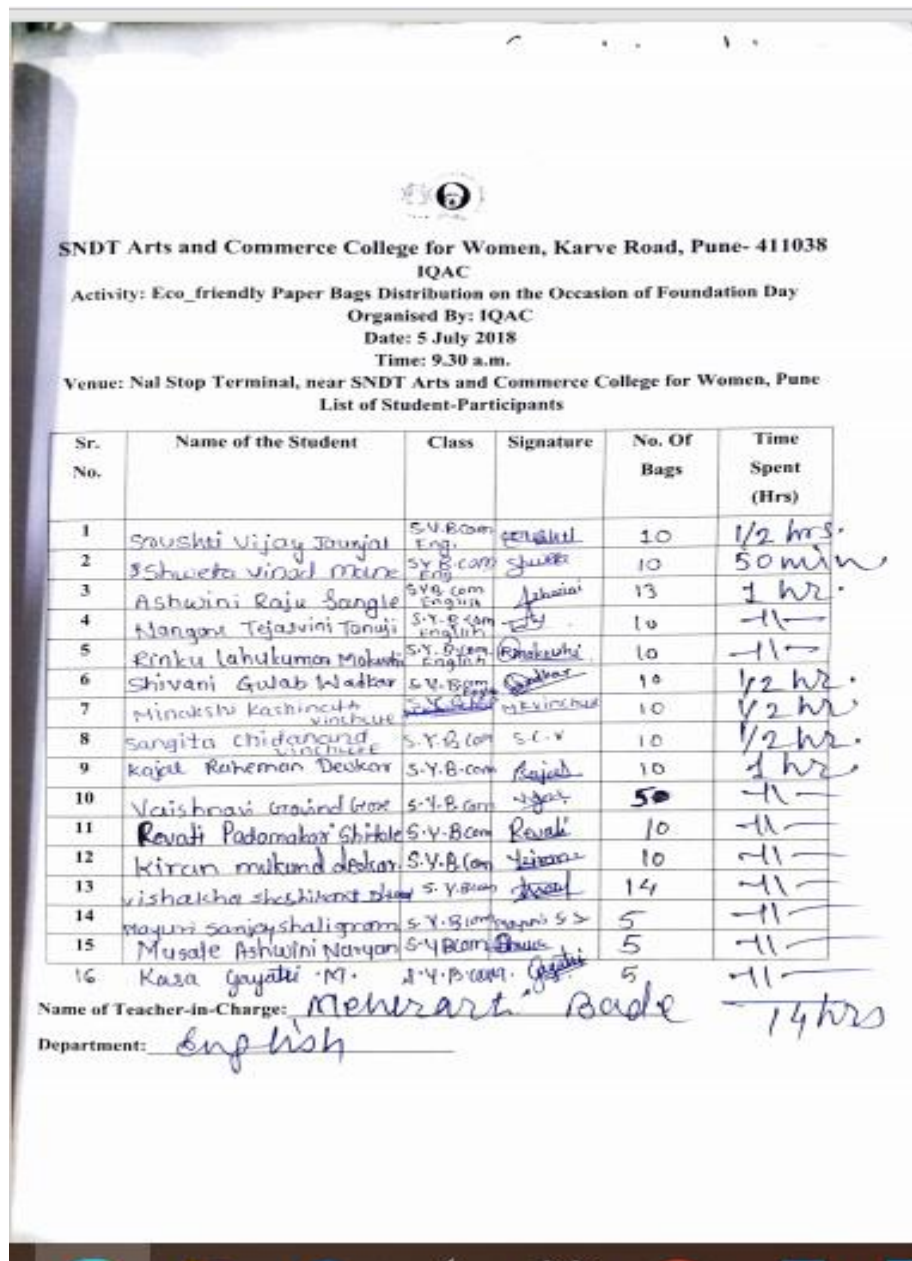 SNDT Arts and Commerce College for Women, Karve Road, Pune- 411038
IQAC
Activity: Eco_friendly Paper Bags Distribution on the Occasion of Foundation Day
Organised By: IQAC
Date: 5 July 2018
Time: 9.30 a.m.
Venue: Nal Stop Terminal, near SNDT Arts and Commerce College for Women, Pune
List of Student-Participants
Sr. No. Name of the Student Class Signature No. Of Bags Time Spent (Hrs)
1 Vijay S.Y.B.com Eng. 10 1/2 hrs.
2 Shweta Vinod Mane SY B.com Eng 10 50 min
3 Ashwini Raju Sangle SYB.com English Ashwini 13 1 hr.
4 Nangare Tejasvini Tanuji S.Y.B.com English 10 -11-
5 Rinku Lahukumar S.Y.B.com English 10 -11-
6 Shivani Gulab Wadkar S.Y.Bcom 10 1/2 hr.
7 Minakshi Kashinath vinchure 10 1/2 hr
8 Sangita Chidanand vinchure S.Y.B.Com S.C.V 10 1/2 hr.
9 Kajal Raheman Devkar S.Y.B.com Kajal 10 1 hr.
10 Vaishnavi Govind Gore S.Y.B.com 50 -11-
11 Revati Padomakar S.Y.Bcom Revati 10 -11-
12 Kiran mukund deokar S.Y.B.Com 10 -11-
13 vishakha S.Y.Bcom 14 -11-
14 Mayuri Sanjay shaligram S.Y.B.com 5 -11-
15 Musale Ashwini Naryan S.Y Bcom 5 -11-
16 Kasa Gayatri .M. S.Y.B.com. Gayatri 5 -11-
Name of Teacher-in-Charge: Bade 14 hrs
Department: English